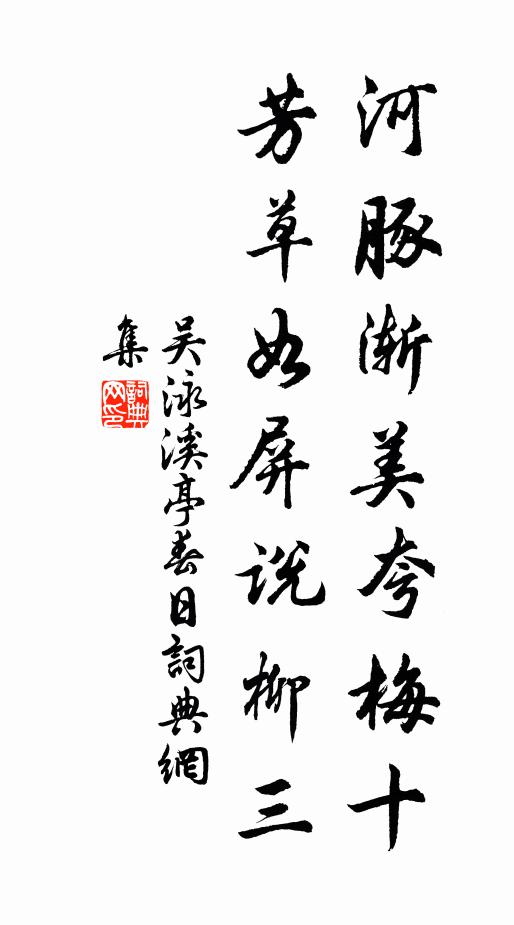 河豚漸美夸梅十
芳草如屏說柳三
吴泳溪亭春日詞典網
集
詞典
网印